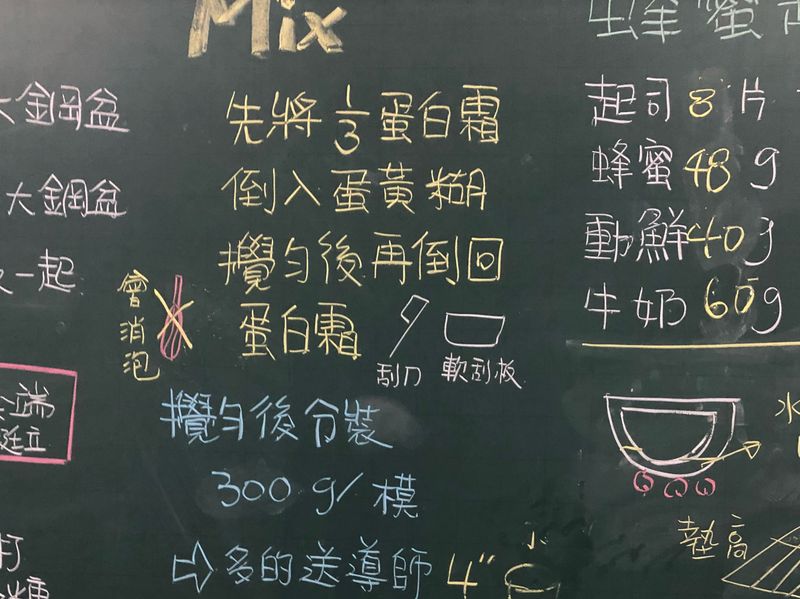 大鋼盆
大鋼盆
一起
端
挺立
Mix
先將 1/3 蛋白霜
倒入蛋黃糊
攪勻後再倒回
蛋白霜
會消泡
刮刀
軟刮板
攪勻後分裝
300 g/模
⇨多的送導師 4"
蜂蜜
起司 8 片
蜂蜜 48 g
動鮮 40g
牛奶 60g
水
墊高